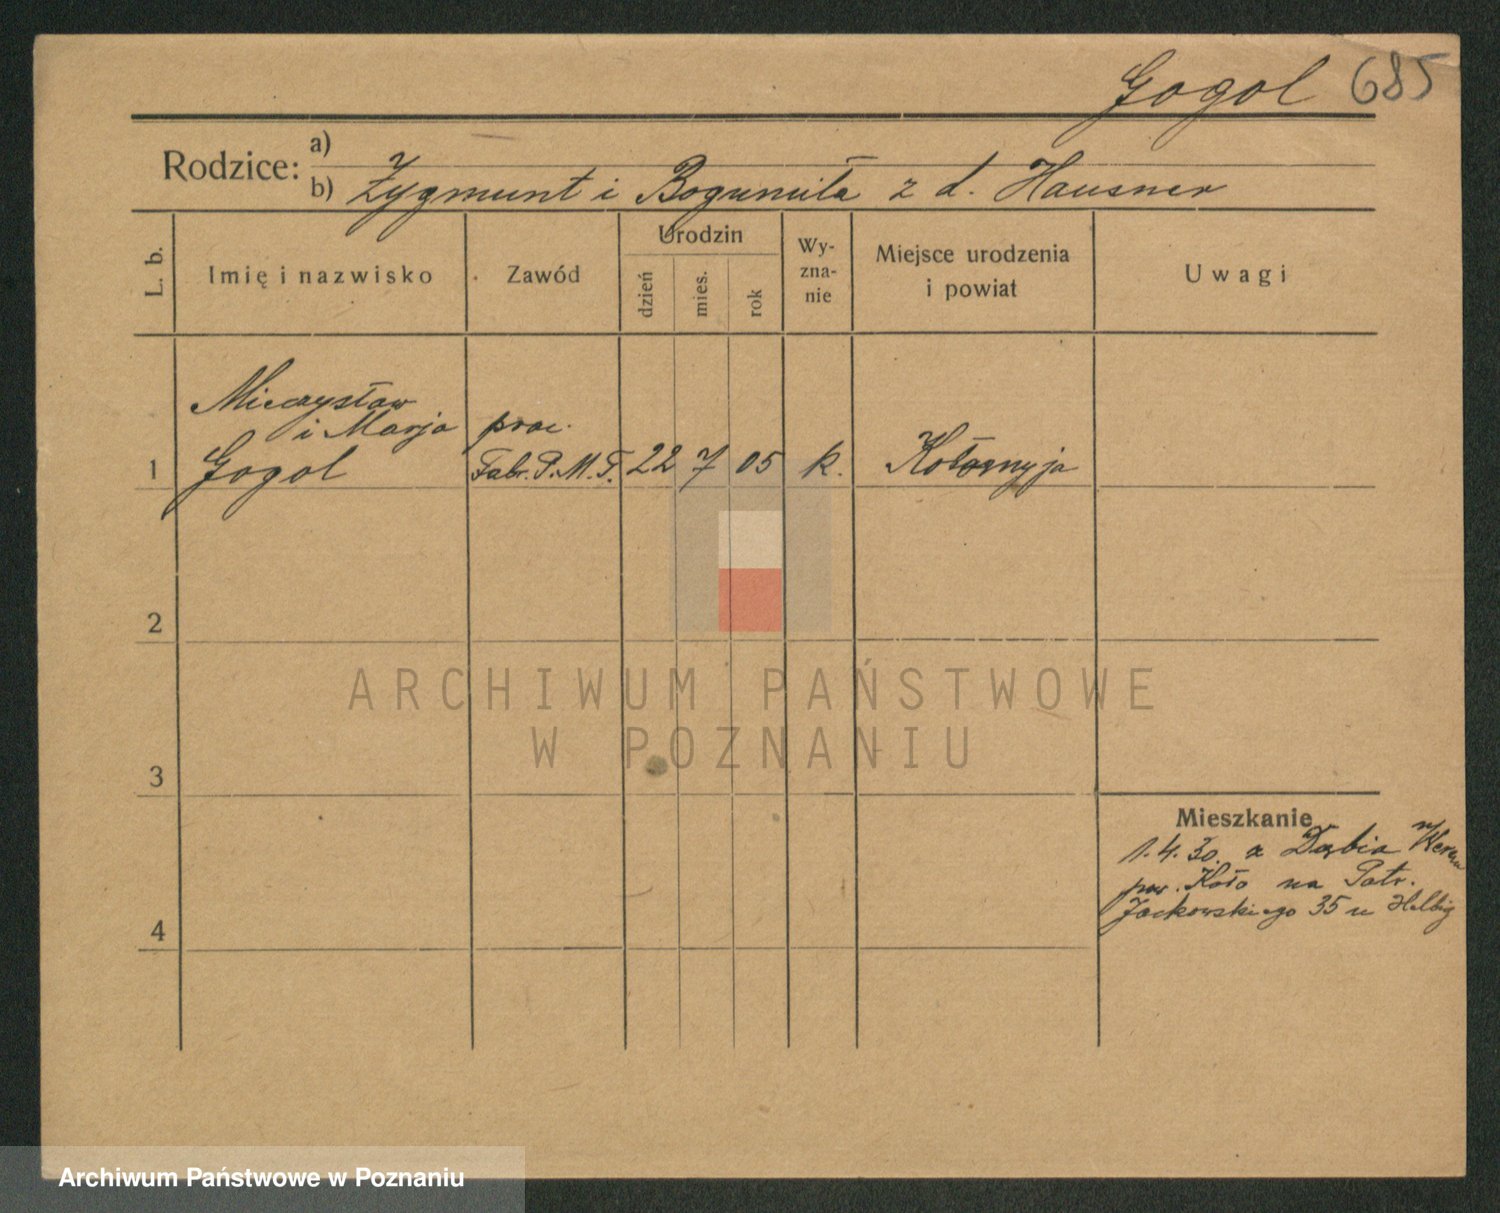 Gogol 685
Rodzice: a)
b) Zygmunt i Bogumiła z d. Hausner
L. b.
Imię i nazwisko
Zawód
Urodzin
dzień
mies.
rok
Wy-
zna-
nie
Miejsce urodzenia
i powiat
Uwagi
Mieczysław
i Marja
Gogol
prac.
Fabr. P. M. T.
1
22 7 05 k.
2
3
4
Mieszkanie
1.4.30. z Dąbia n/
pow. Koło na Patr.
Jackowskiego 35 u Helbig
ARCHIWUM PAŃSTWOWE
W POZNANIU
Archiwum Państwowe w Poznaniu